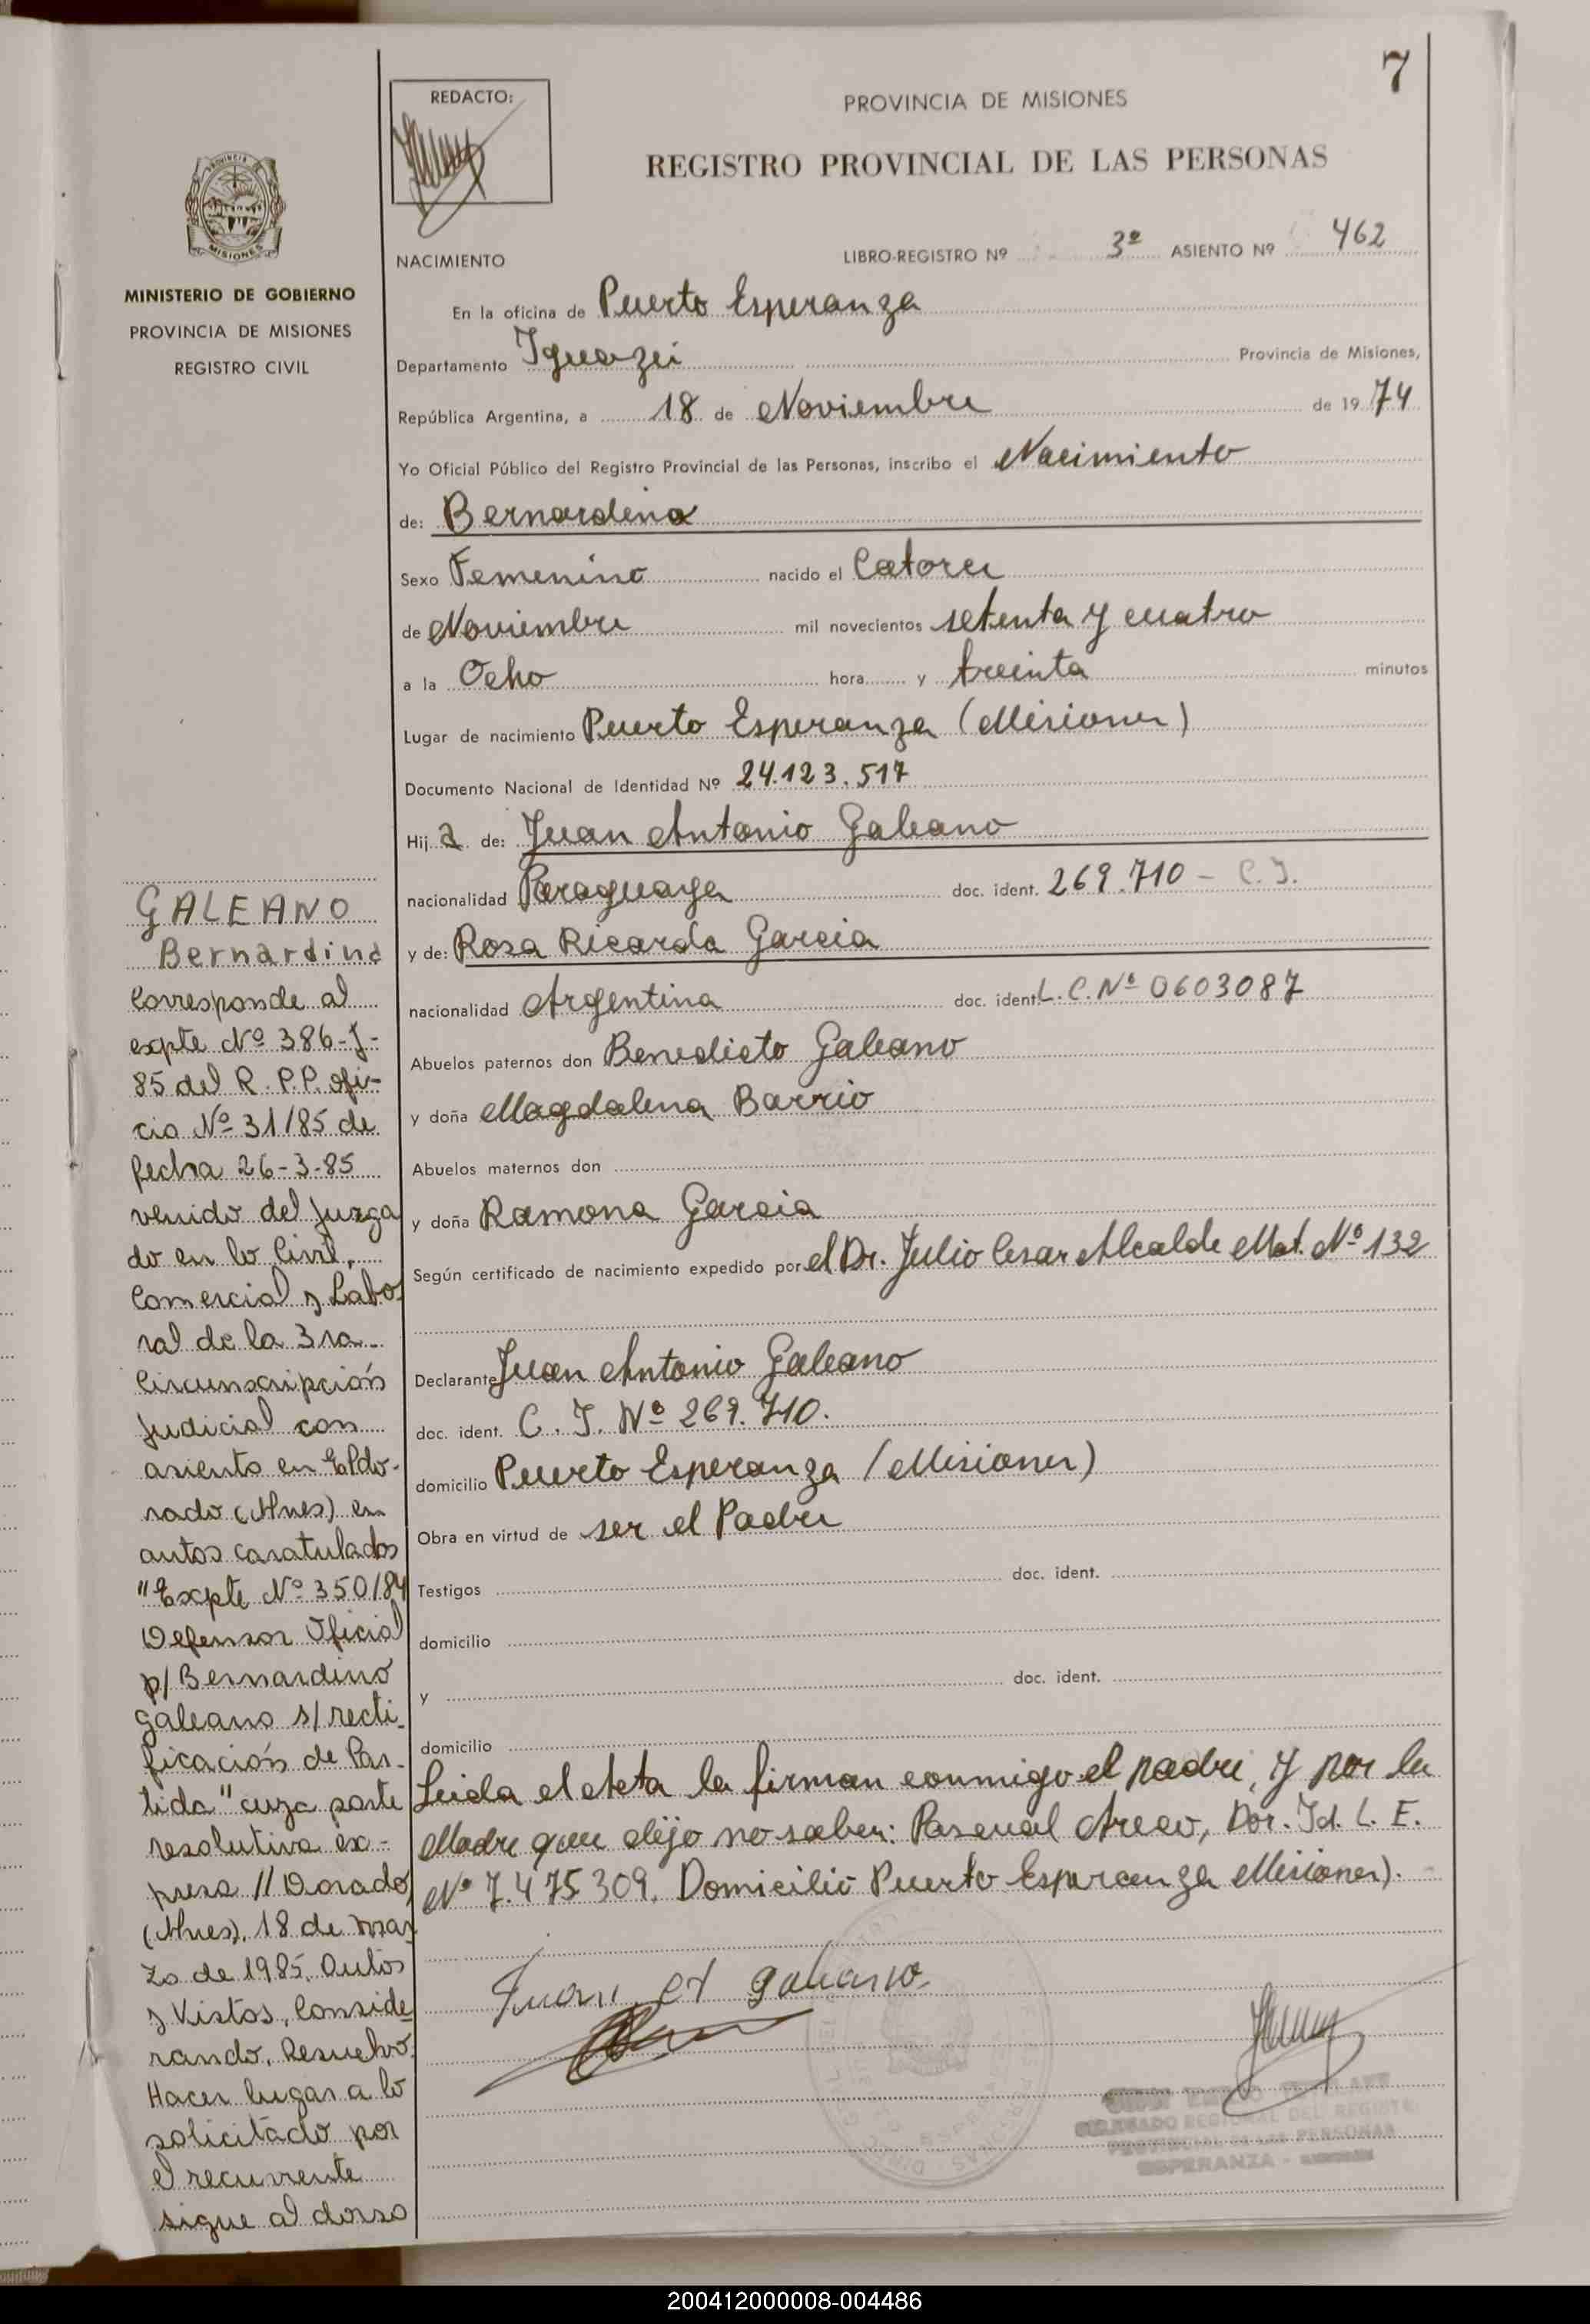 7
REDACTO:
PROVINCIA DE MISIONES
REGISTRO PROVINCIAL DE LAS PERSONAS
NACIMIENTO
LIBRO-REGISTRO Nº 3º ASIENTO Nº 462
En la oficina de Puerto Esperanza
Departamento Iguazú Provincia de Misiones,
República Argentina, a 18 de Noviembre de 19 74
Yo Oficial Público del Registro Provincial de las Personas, inscribo el Nacimiento
de: Bernardina
Sexo Femenino nacido el Catorce
de Noviembre mil novecientos setenta y cuatro
a la Ocho hora y treinta minutos
Lugar de nacimiento Puerto Esperanza (Misiones)
Documento Nacional de Identidad Nº 24.123.517
Hij a de: Juan Antonio Galeano
nacionalidad Paraguaya doc. ident. 269.710 - C.I.
y de: Rosa Ricarda Garcia
nacionalidad Argentina doc. ident. L.C. Nº 0603087
Abuelos paternos don Benedicto Galeano
y doña Magdalena Barrio
Abuelos maternos don
y doña Ramona Garcia
Según certificado de nacimiento expedido por el Dr. Julio Cesar Alcalde Mat. Nº 132
Declarante Juan Antonio Galeano
doc. ident. C. I. Nº 269.710.
domicilio Puerto Esperanza (Misiones)
Obra en virtud de ser el Padre
Testigos doc. ident.
domicilio
y doc. ident.
domicilio
Leida el Acta la firman conmigo el padre, y por la
Madre que dijo no saber: Pascual Areco, Dor. Id. L. E.
Nº 7.475.309. Domicilio Puerto Esperanza Misiones).
Juan A Galeano
PROVINCIA
MISIONES
MINISTERIO DE GOBIERNO
PROVINCIA DE MISIONES
REGISTRO CIVIL
GALEANO
Bernardina
Corresponde al
expte Nº 386-J-
85 del R.P.P. ofi-
cio Nº 31/85 de
fecha 26-3-85
venido del Juzga
do en lo Civil,
Comercial y Labo
ral de la 3ra
Circunscripción
Judicial con
asiento en Eldo-
rado (Mnes) en
autos caratulados
"Expte Nº 350/84
Defensor Oficial
p/ Bernardino
Galeano s/ recti
ficación de Par-
tida" cuya parte
resolutiva ex-
presa // Dorado,
(Mnes), 18 de mar
zo de 1985. Autos
y Vistos, Conside
rando, Resuelvo:
Hacer lugar a lo
solicitado por
el recurrente
sigue al dorso
DELEGADO REGIONAL DEL REGISTRO
PROVINCIAL DE LAS PERSONAS
ESPERANZA -
200412000008-004486